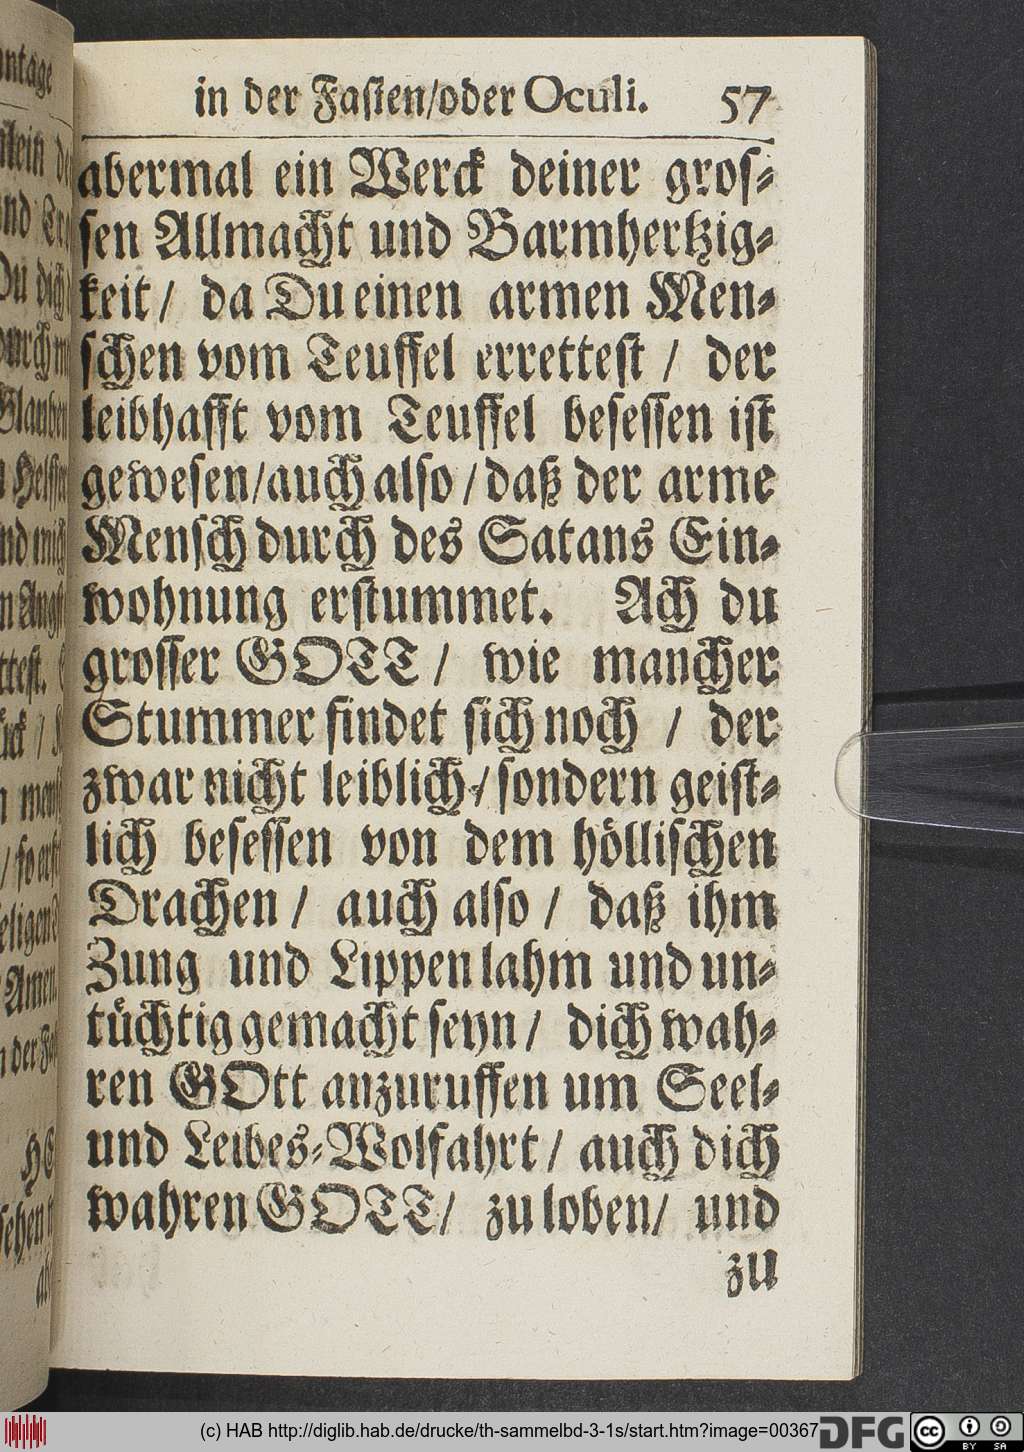 in der Faſten/oder Oculi. 57
abermal ein Werck deiner groſ⸗
ſen Allmacht und Barmhertzig⸗
keit / da Du einen armen Men⸗
ſchen vom Teuffel erretteſt / der
leibhafft vom Teuffel beſeſſen iſt
geweſen/auch alſo / daß der arme
Menſch durch des Satans Ein⸗
wohnung erſtummet. Ach du
groſſer GOTT / wie mancher
Stummer findet ſich noch / der
zwar nicht leiblich / ſondern geiſt⸗
lich beſeſſen von dem hoͤlliſchen
Drachen / auch alſo / daß ihm
Zung und Lippen lahm und un⸗
tuͤchtig gemacht ſeyn / dich wah⸗
ren GOtt anzuruffen um Seel⸗
und Leibes⸗Wolfahrt / auch dich
wahren GOTT / zu loben / und
zu
(c) HAB http://diglib.hab.de/drucke/th-sammelbd-3-1s/start.htm?image=00367
DFG
cc BY SA